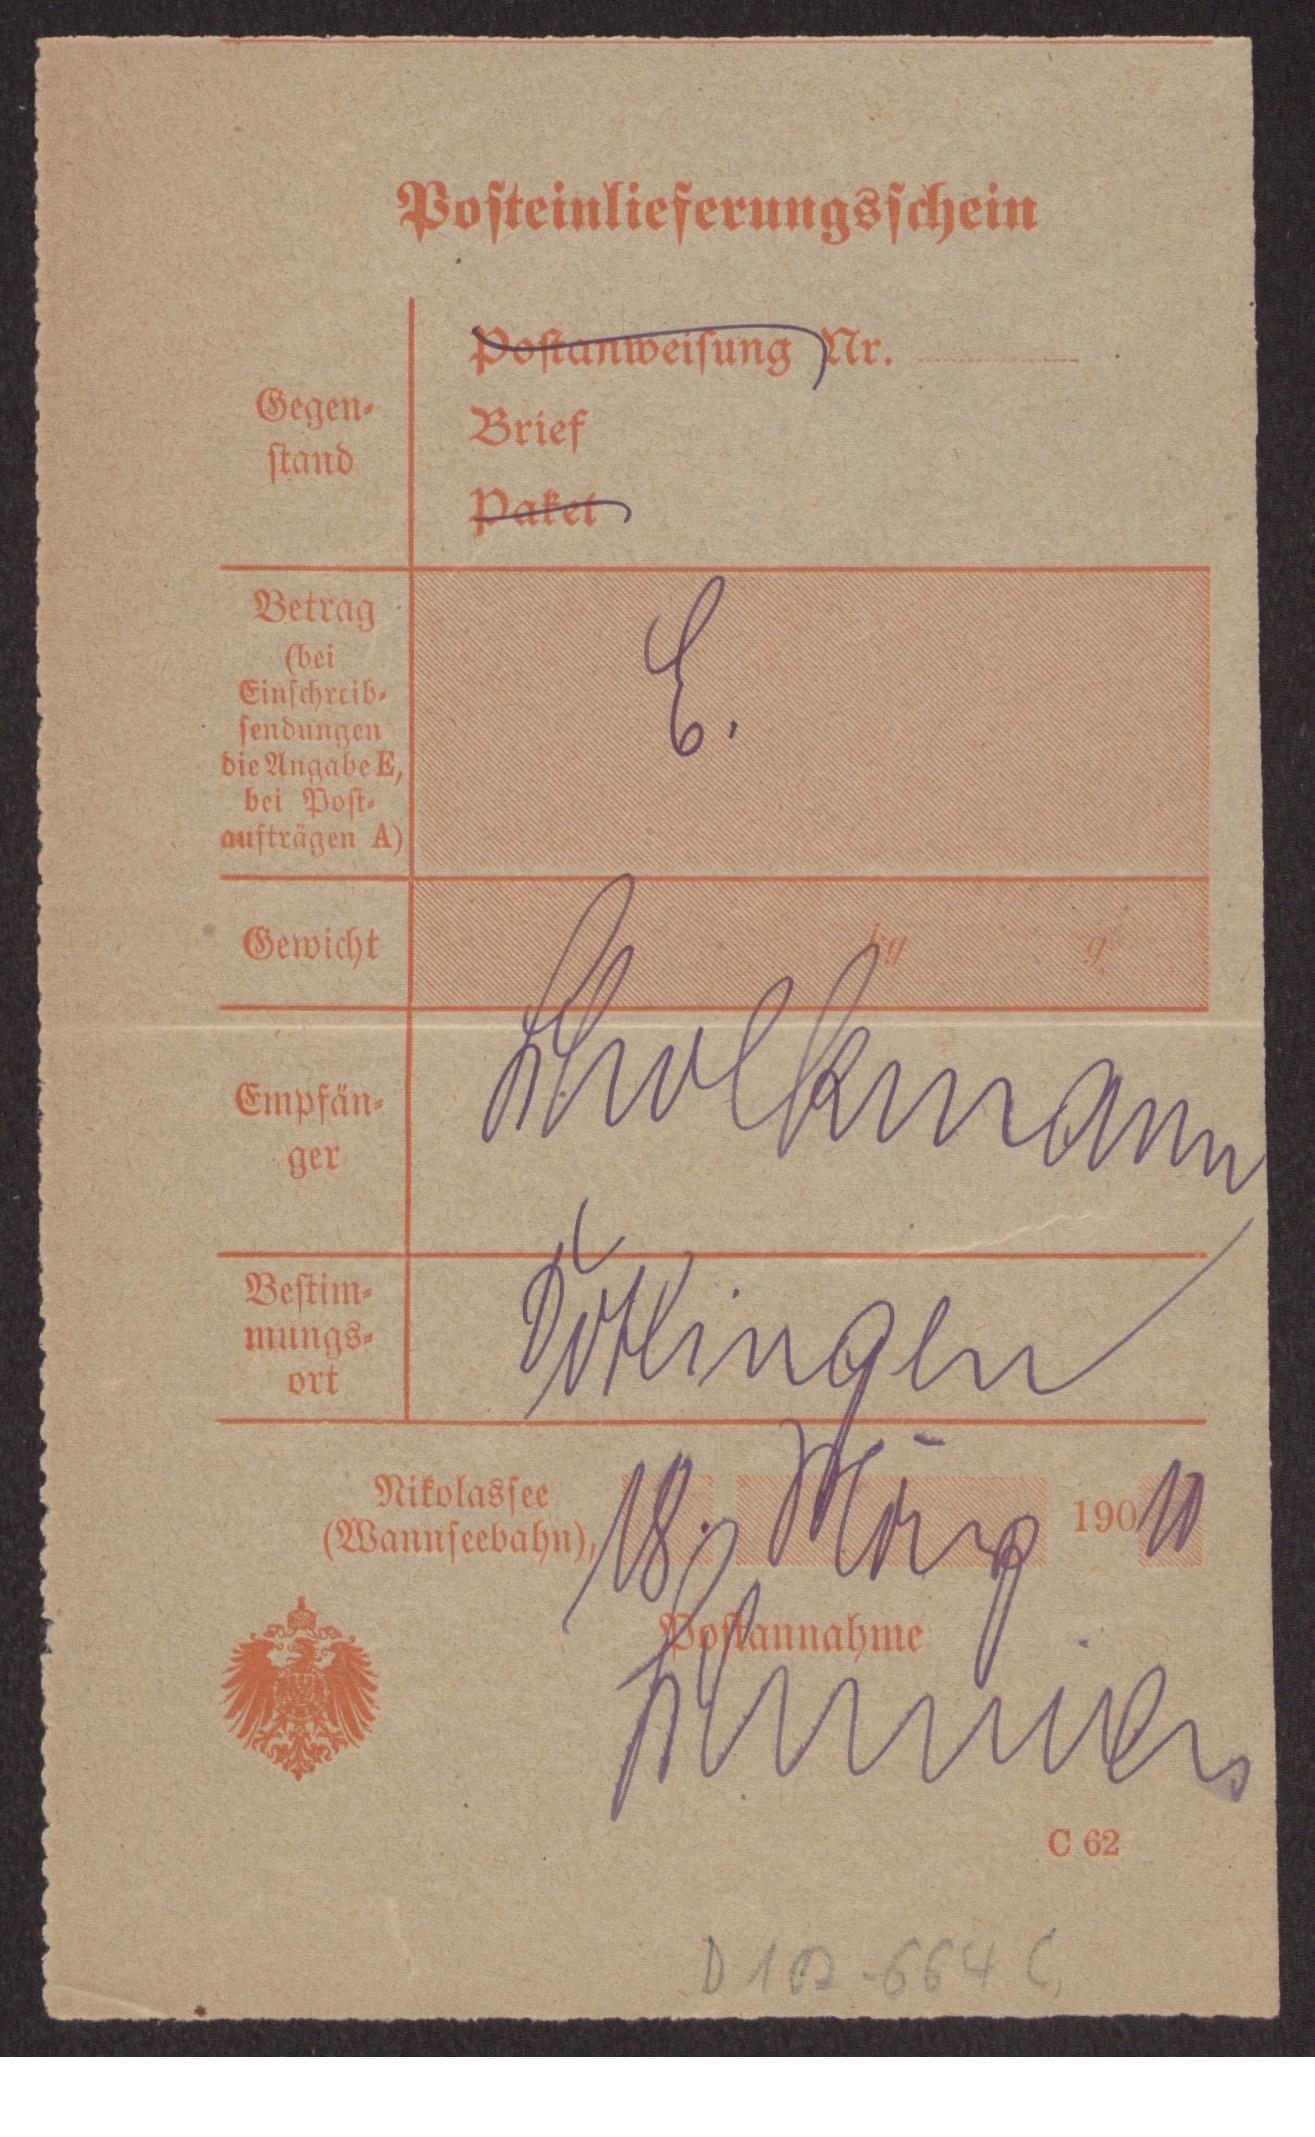 Posteinlieferungsschein
Gegen-
stand
Postanweisung Nr.
Brief
Paket
Betrag
(bei
Einschreib-
sendungen
die Angabe E,
bei Post-
aufträgen A)
E.
Gewicht
kg g
Empfän-
ger
Bestim-
mungs-
ort
Nikolassee
(Wannseebahn), 18. März 190 10
Postannahme
C 62